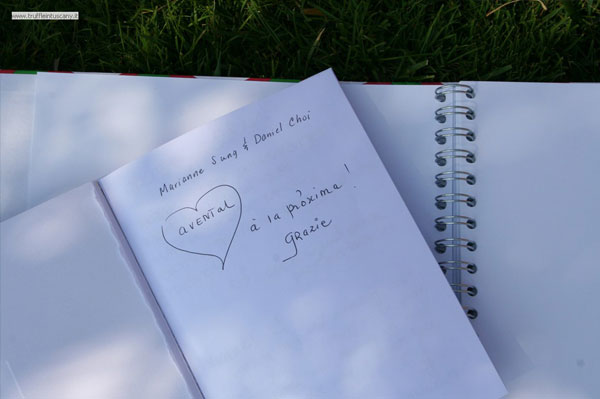 www.truffleintuscany.it
Marianne Sung & Daniel Choi
AVENTAL
à la pròxima!
GRAZIE